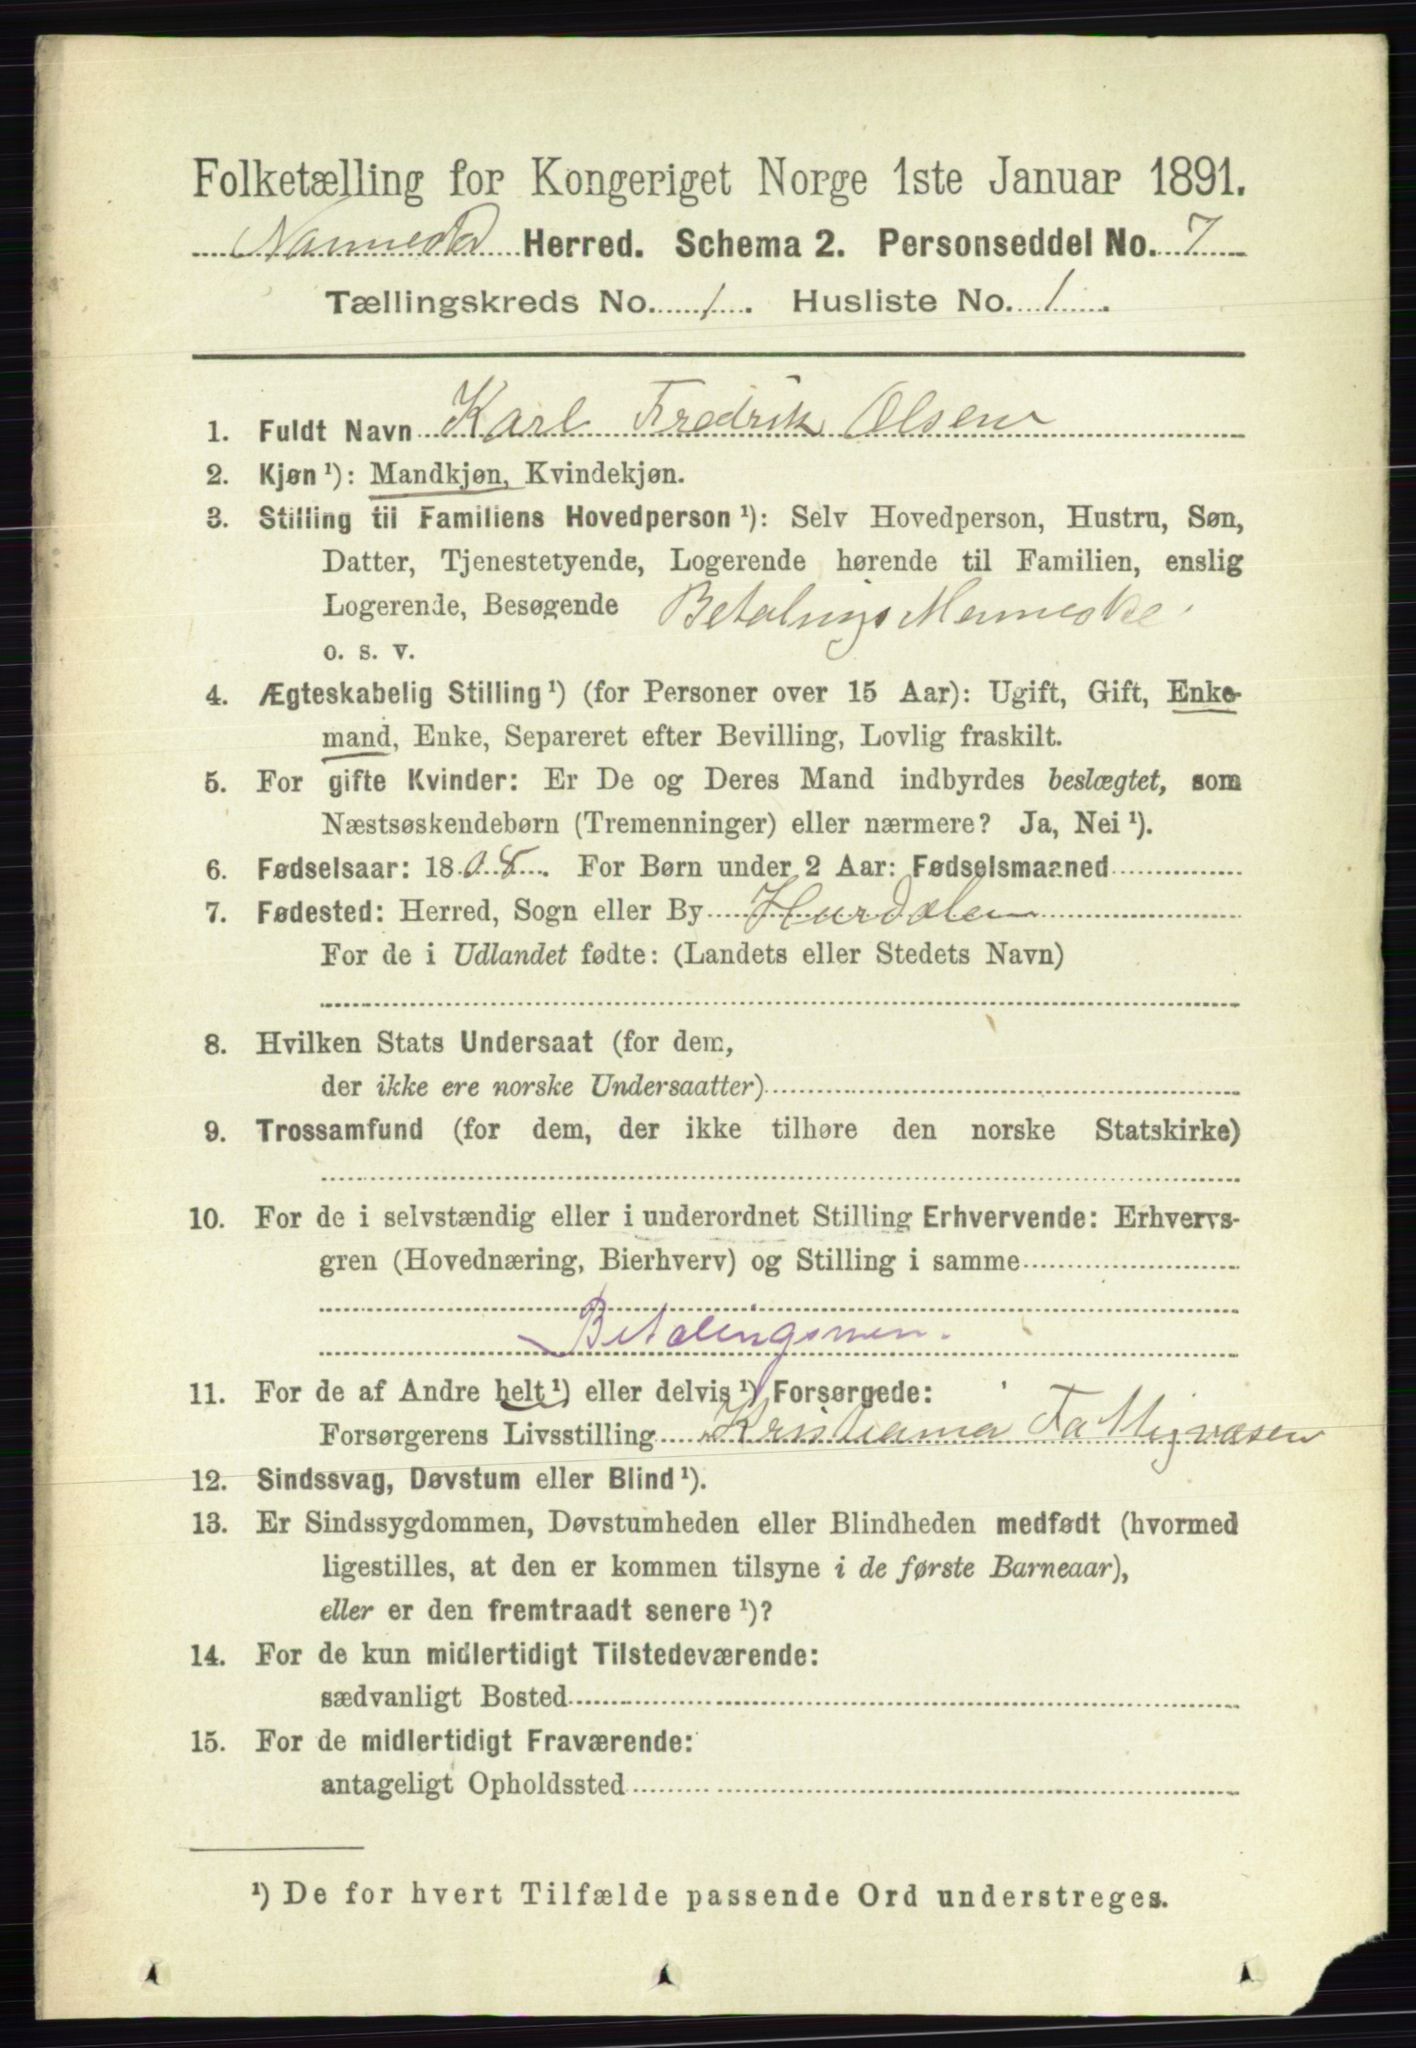 Folketælling for Kongeriget Norge 1ste Januar 1891.
Nannestad Herred. Schema 2. Personseddel No. 7
Tællingskreds No. 1. Husliste No. 1.
1. Fuldt Navn Karl Fredrik Olsen
2. Kjøn ¹): Mandkjøn, Kvindekjøn.
3. Stilling til Familiens Hovedperson ¹): Selv Hovedperson, Hustru, Søn,
Datter, Tjenestetyende, Logerende hørende til Familien, enslig
Logerende, Besøgende Betalings Menneske.
o. s. v.
4. Ægteskabelig Stilling ¹) (for Personer over 15 Aar): Ugift, Gift, Enke-
mand, Enke, Separeret efter Bevilling, Lovlig fraskilt.
5. For gifte Kvinder: Er De og Deres Mand indbyrdes beslægtet, som
Næstsøskendebørn (Tremenninger) eller nærmere? Ja, Nei ¹).
6. Fødselsaar: 1808. For Børn under 2 Aar: Fødselsmaaned
7. Fødested: Herred, Sogn eller By Hurdalen
For de i Udlandet fødte: (Landets eller Stedets Navn)
8. Hvilken Stats Undersaat (for dem,
der ikke ere norske Undersaatter)
9. Trossamfund (for dem, der ikke tilhøre den norske Statskirke)
10. For de i selvstændig eller i underordnet Stilling Erhvervende: Erhvervs-
gren (Hovednæring, Bierhverv) og Stilling i samme
Betalingsmen.
11. For de af Andre helt ¹) eller delvis ¹) Forsørgede:
Forsørgerens Livsstilling Kristiania Fattigvæsen
12. Sindssvag, Døvstum eller Blind ¹).
13. Er Sindssygdommen, Døvstumheden eller Blindheden medfødt (hvormed
ligestilles, at den er kommen tilsyne i de første Barneaar),
eller er den fremtraadt senere ¹)?
14. For de kun midlertidigt Tilstedeværende:
sædvanligt Bosted
15. For de midlertidigt Fraværende:
antageligt Opholdssted
¹) De for hvert Tilfælde passende Ord understreges.